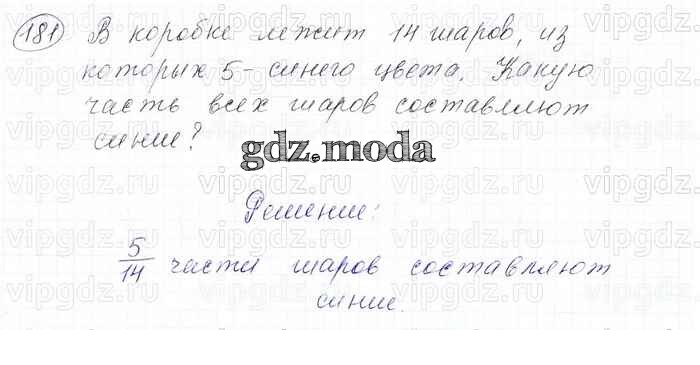 181 В коробке лежит 14 шаров, из
которых 5 - синего цвета. Какую
часть всех шаров составляют
синие?
gdz.moda
Решение:
5/14 части шаров составляют
синие.